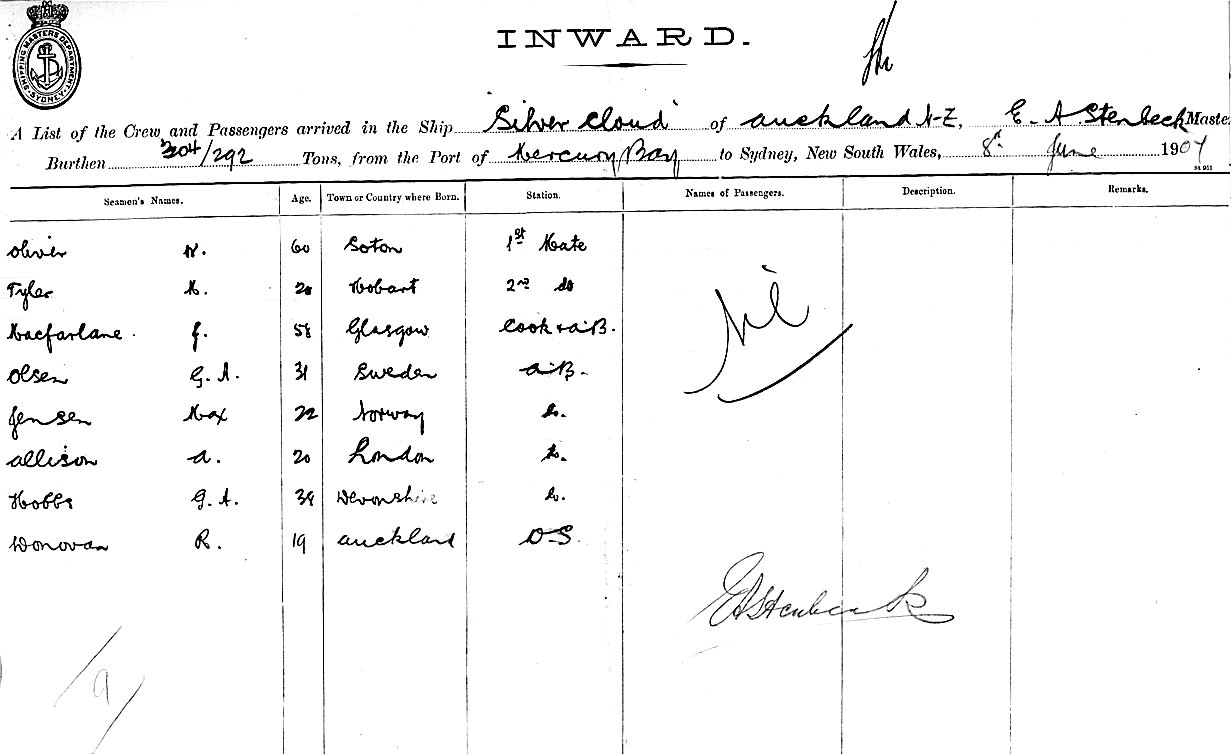 SHIPPING MASTERS DEPARTMENT SYDNEY
INWARD.
A List of the Crew and Passengers arrived in the Ship Silver Cloud of Auckland N-Z, E. A. Stenbeck Maste
Burthen 304/292 Tons, from the Port of Mercury Bay to Sydney, New South Wales, 8th June 1907
Seamen's Names. Age. Town or Country where Born. Station. Names of Passengers. Description. Remarks.
Oliver 60 Soton 1st Mate
Tyler 20 Hobart 2nd do
Macfarlane. J. 58 Glasgow Cook & A.B.
Olsen G. A. 31 Sweden A.B.
Jensen Max 22 Norway do.
Allison A. 20 London do.
Hobbs G. A. 38 Devonshire do.
Donovan R. 19 Auckland O.S.
Nil
EAStenbeck
9